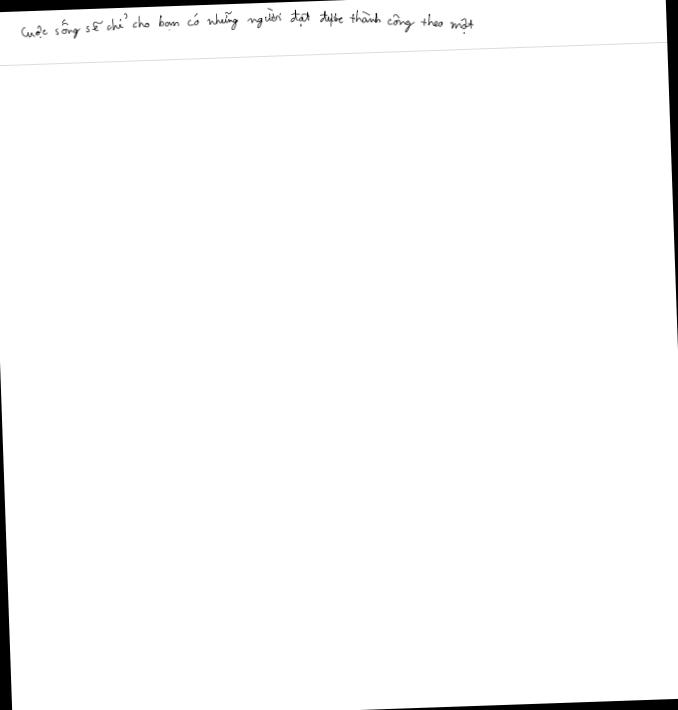 Cuộc sống sẽ chỉ cho bạn có những người đạt được thành công theo một